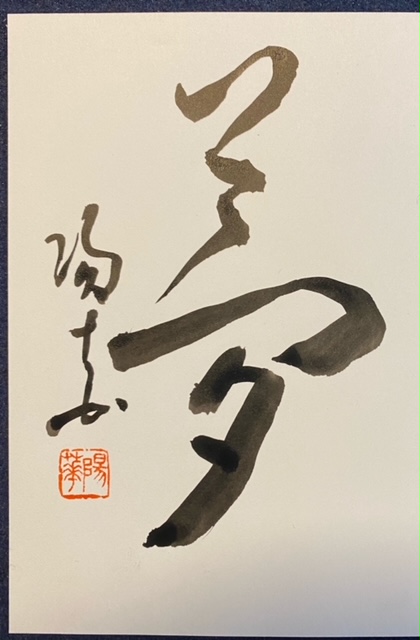 夢
陽華
陽華